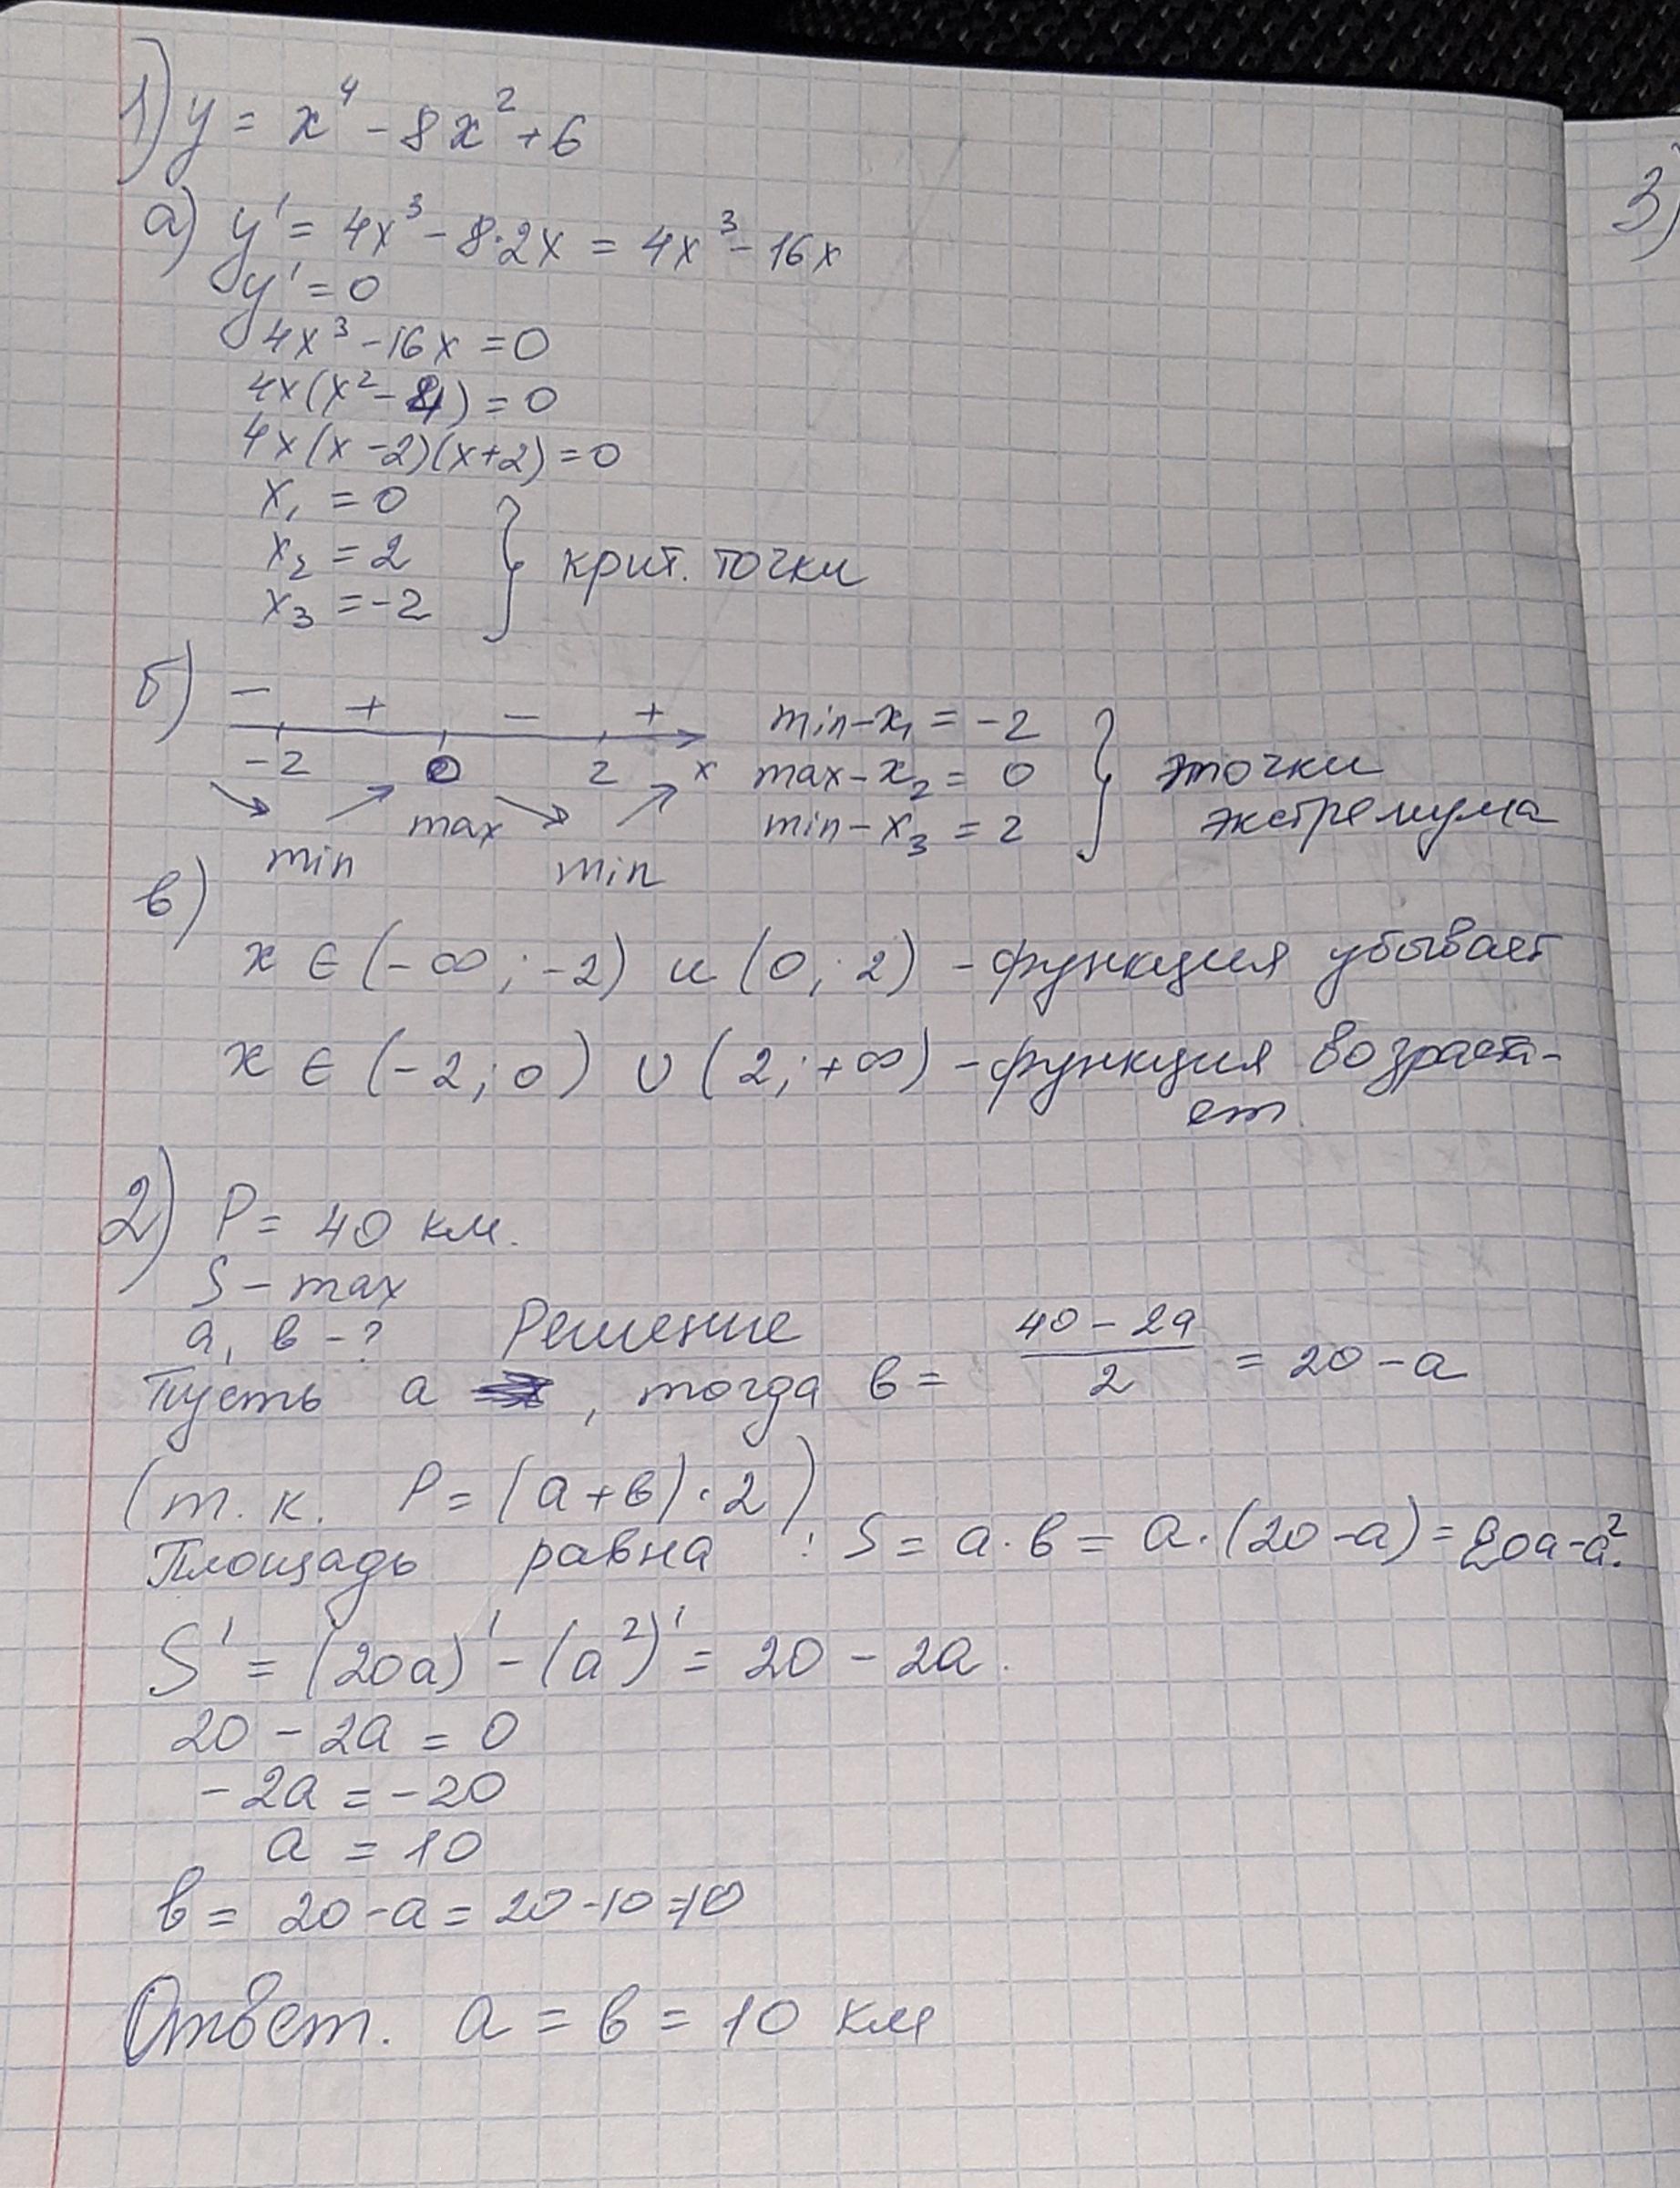 1) y = x⁴ - 8x² + 6
а) y' = 4x³ - 8·2x = 4x³ - 16x
y' = 0
4x³ - 16x = 0
4x(x² - 4) = 0
4x(x - 2)(x + 2) = 0
x₁ = 0
x₂ = 2 } крит. точки
x₃ = -2
б) - + - +
-2 0 2 x
↘ ↗ max ↘ ↗
min min
min - x₁ = -2
max - x₂ = 0 } точки
min - x₃ = 2 экстремума
в)
x ∈ (-∞; -2) и (0; 2) - функция убывает
x ∈ (-2; 0) ∪ (2; +∞) - функция возраста-
ет
2) P = 40 км.
S - max
a, в - ? Решение
Пусть a , тогда в = (40 - 2a)/2 = 20 - a
(т. к. P = (a + в)·2)
Площадь равна : S = a·в = a·(20 - a) = 20a - a².
S' = (20a)' - (a²)' = 20 - 2a.
20 - 2a = 0
-2a = -20
a = 10
в = 20 - a = 20 - 10 = 10
Ответ. a = в = 10 км
3)